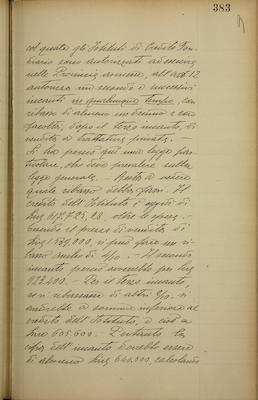 383
col quale gli Istituti di Credito Fon-
diario sono autorizzati ad
nelle Provincie romane, all'art. 12
autorizza un secondo e successivi
incanti in qualunque tempo, con
ribasso di almeno un decimo e con
facoltà, dopo il terzo incanto, di
vendita a trattative private. -
Si ha perciò qui una legge par-
ticolare, che deve prevalere sulla
legge generale. - Resta a vedere
quale ribasso debba farsi. Il
credito dell'Istituto è oggidì di
Lire 617.525,28 oltre le spese. -
Essendo il prezzo di vendita di
Lire, si può fare un ri-
basso anche di 4/10. - Il secondo
incanto perciò avverrebbe per Lire
922.400. - Per il terzo incanto,
se si ribassano di altri 4/10, si
andrebbe a somma inferiore al
credito dell'Istituto, e cioè a
Lire 605.600. - Pertanto la
base dell'incanto dovrebbe essere
di almeno Lire 640.000, calcolando